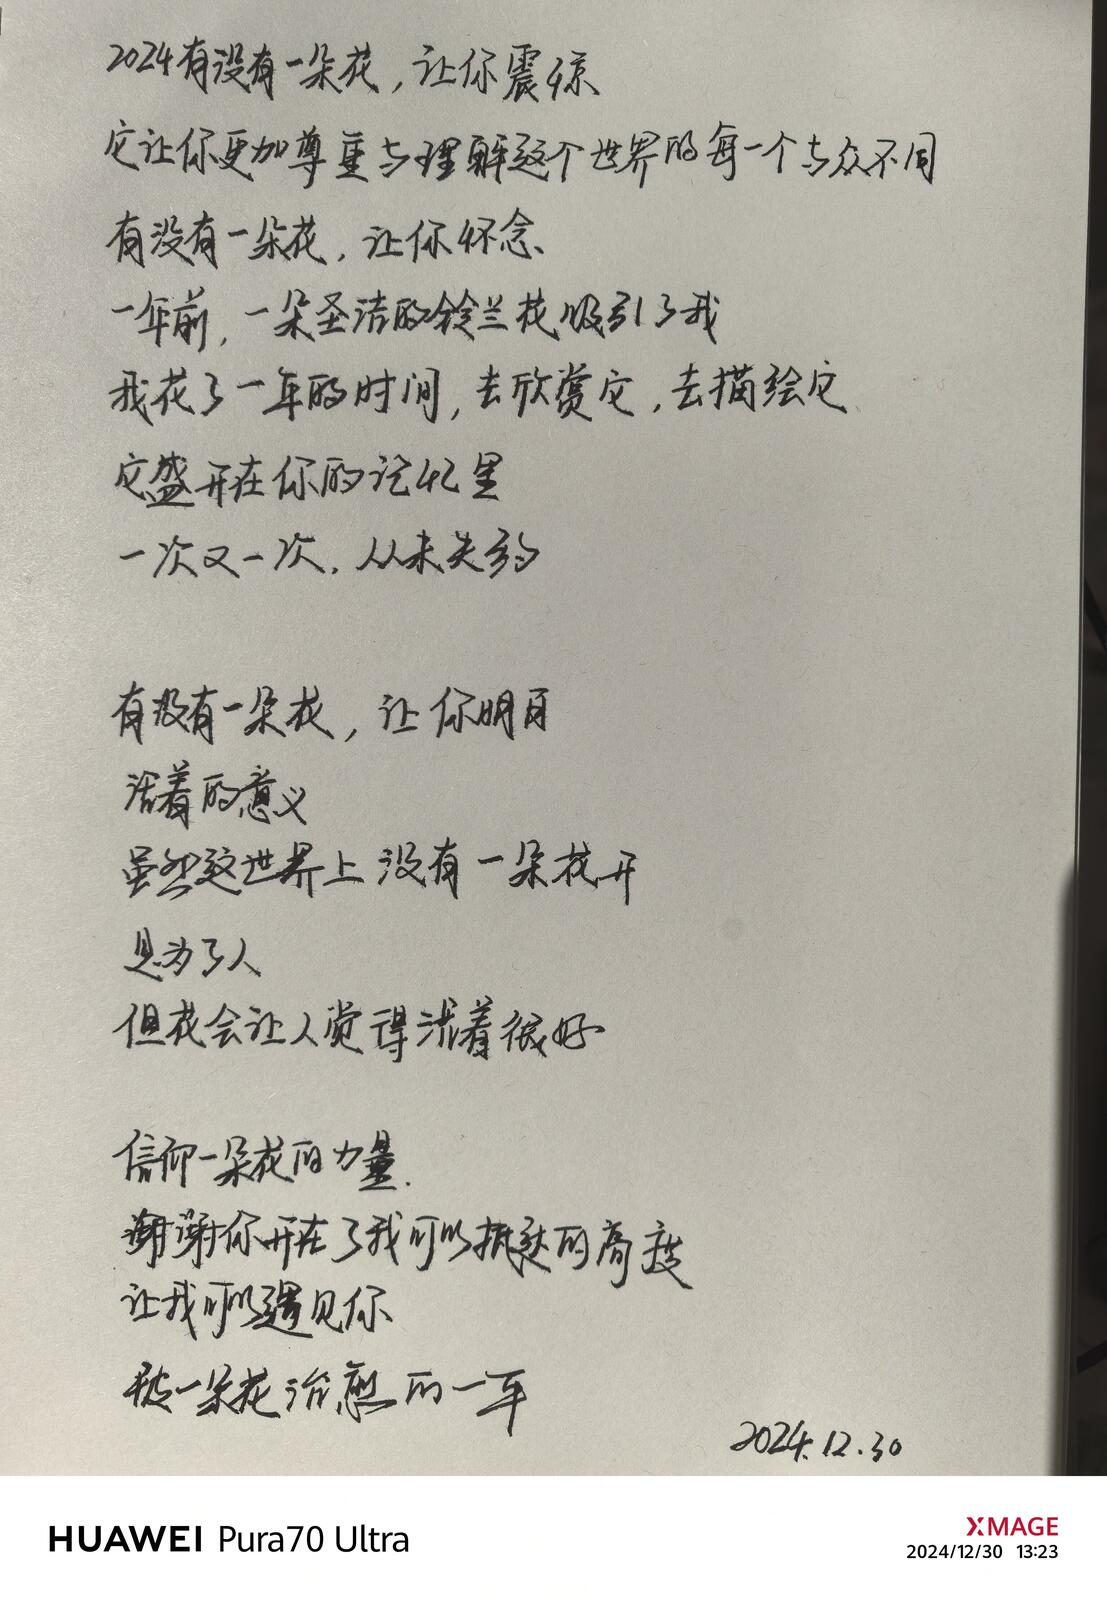 2024有没有一朵花，让你震惊
它让你更加尊重与理解这个世界的每一个与众不同
有没有一朵花，让你怀念
一年前，一朵圣洁的铃兰花吸引了我
我花了一年的时间，去欣赏它，去描绘它
它盛开在你的记忆里
一次又一次，从未失约
有没有一朵花，让你明白
活着的意义
虽然这世界上没有一朵花开
是为了人
但花会让人觉得活着很好
信仰一朵花的力量.
谢谢你开在了我可以抵达的高度
让我可以遇见你
被一朵花治愈的一年
2024.12.30
HUAWEI Pura70 Ultra
XMAGE
2024/12/30 13:23